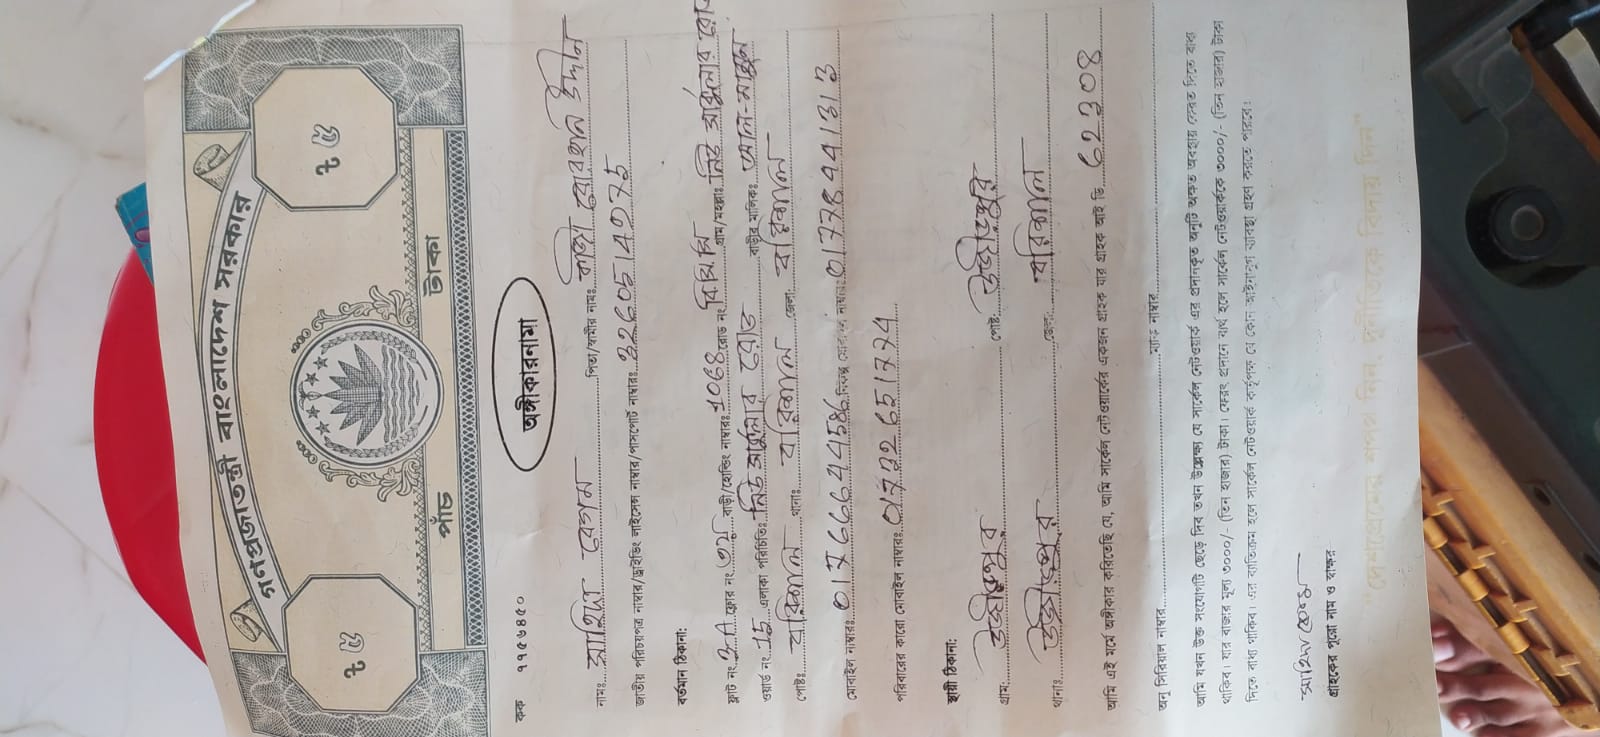 গণপ্রজাতন্ত্রী বাংলাদেশ সরকার
৳ ৫
৳ ৫
পাঁচ টাকা
কক ৭৭৫৬৪৫০
অঙ্গীকারনামা
নামঃ সাহিদা বেগম পিতা/স্বামীর নামঃ কাজী বোরহান উদ্দীন
জাতীয় পরিচয়পত্র নাম্বার/ড্রাইভিং লাইসেন্স নাম্বার/পাসপোর্ট নাম্বারঃ
বর্তমান ঠিকানা:
ফ্লাট নং 3-A ফ্লোর নং ৩য় বাড়ী/হোল্ডিং নাম্বারঃ রোড নং গ্রাম/মহল্লাঃ নিউ সার্কুলার রোড
ওয়ার্ড নং এলাকা পরিচিতিঃ নিউ সার্কুলার রোড বাড়ীর মালিকঃ আল-মামুন
পোষ্টঃ বরিশাল থানাঃ বরিশাল জেলা: বরিশাল
মোবাইল নাম্বারঃ বিকল্প মোবাইল নাম্বারঃ
পরিবারের কারো মোবাইল নাম্বারঃ
স্থায়ী ঠিকানা:
গ্রাম: উজীরপুর পোষ্ট: উজীরপুর
থানাঃ উজীরপুর জেলা: বরিশাল
আমি এই মর্মে অঙ্গীকার করিতেছি যে, আমি সার্কেল নেটওয়ার্কের একজন গ্রাহক যার গ্রাহক আই ডি 62308
অনু সিরিয়াল নাম্বার ম্যাক নাম্বার
আমি যখন উক্ত সংযোগটি ছেড়ে দিব তখন উল্লেক্ষ্য যে সার্কেল নেটওয়ার্ক এর প্রদানকৃত অনুটি অক্ষত অবস্থায় ফেরত দিতে বাধ্য
থাকিব। যার বাজার মূল্য ৩০০০/- (তিন হাজার) টাকা। ফেরৎ প্রদানে ব্যর্থ হলে সার্কেল নেটওয়ার্ককে ৩০০০/- (তিন হাজার) টাকা
দিতে বাধ্য থাকিব। এর ব্যতিক্রম হলে সার্কেল নেটওয়ার্ক কর্তৃপক্ষ যে কোন আইনানুগ ব্যবস্থা গ্রহণ করতে পারবে।
গ্রাহকের পুরো নাম ও স্বাক্ষর
"দেশপ্রেমের শপথ নিন, দুর্নীতিকে বিদায় দিন"